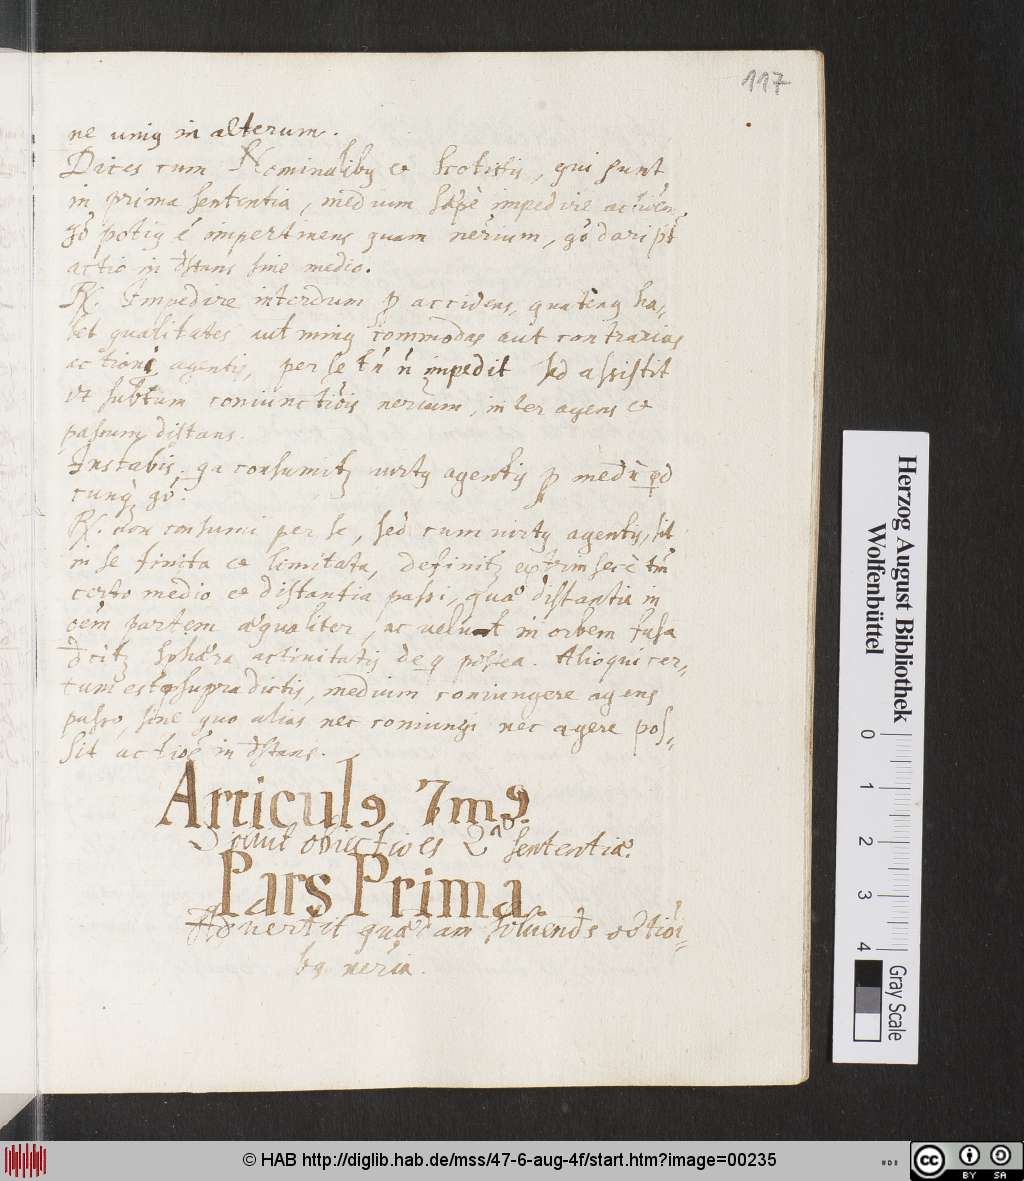 117
ne uniꝰ in alterum.
Dices cum Nominalibꝰ et Scotistis, qui sunt
in prima sententia, medium sæpè impedire actiõem,
gõ potiꝰ ẽ impertinens quam neriũm, gõ dari põt
actio in dstans sine medio.
R. Impedire interdum ꝑ accidens, quatenꝰ ha-
bet qualitates aut minꝰ commodas aut contrarias
actioni agentis, per se tñ ñ impedit sed assistit
et conunctiõis neriũm, inter agens et
passum distans.
Instabis. qa consumitꝛ virtꝰ agentis ꝑ mediũ qd
cunqꝫ gõ.
R. non consumi per se, sed cum virtꝰ agentis, sit
in se finita et limitata, definitꝛ tm̃
certo medio et distantia passi, quæ distantia in
õem partem æqualiter, ac velut in orbem fusa
dcitꝛ sphæra activitatis de q postea. Alioqui cer-
tum est supradictis, medium coniungere agens
passo, sine quo alias nec coniungi nec agere pos-
sit actiõe in dstans.
Articulꝰ 7mꝰ.
Soluit obiectiões 2æ sententiæ.
Pars Prima
Advertit quædam solvends obtiõi-
bꝰ neria.
Herzog August Bibliothek
Wolfenbüttel
0 1 2 3 4
Gray Scale
© HAB http://diglib.hab.de/mss/47-6-aug-4f/start.htm?image=00235
HAB
cc BY SA